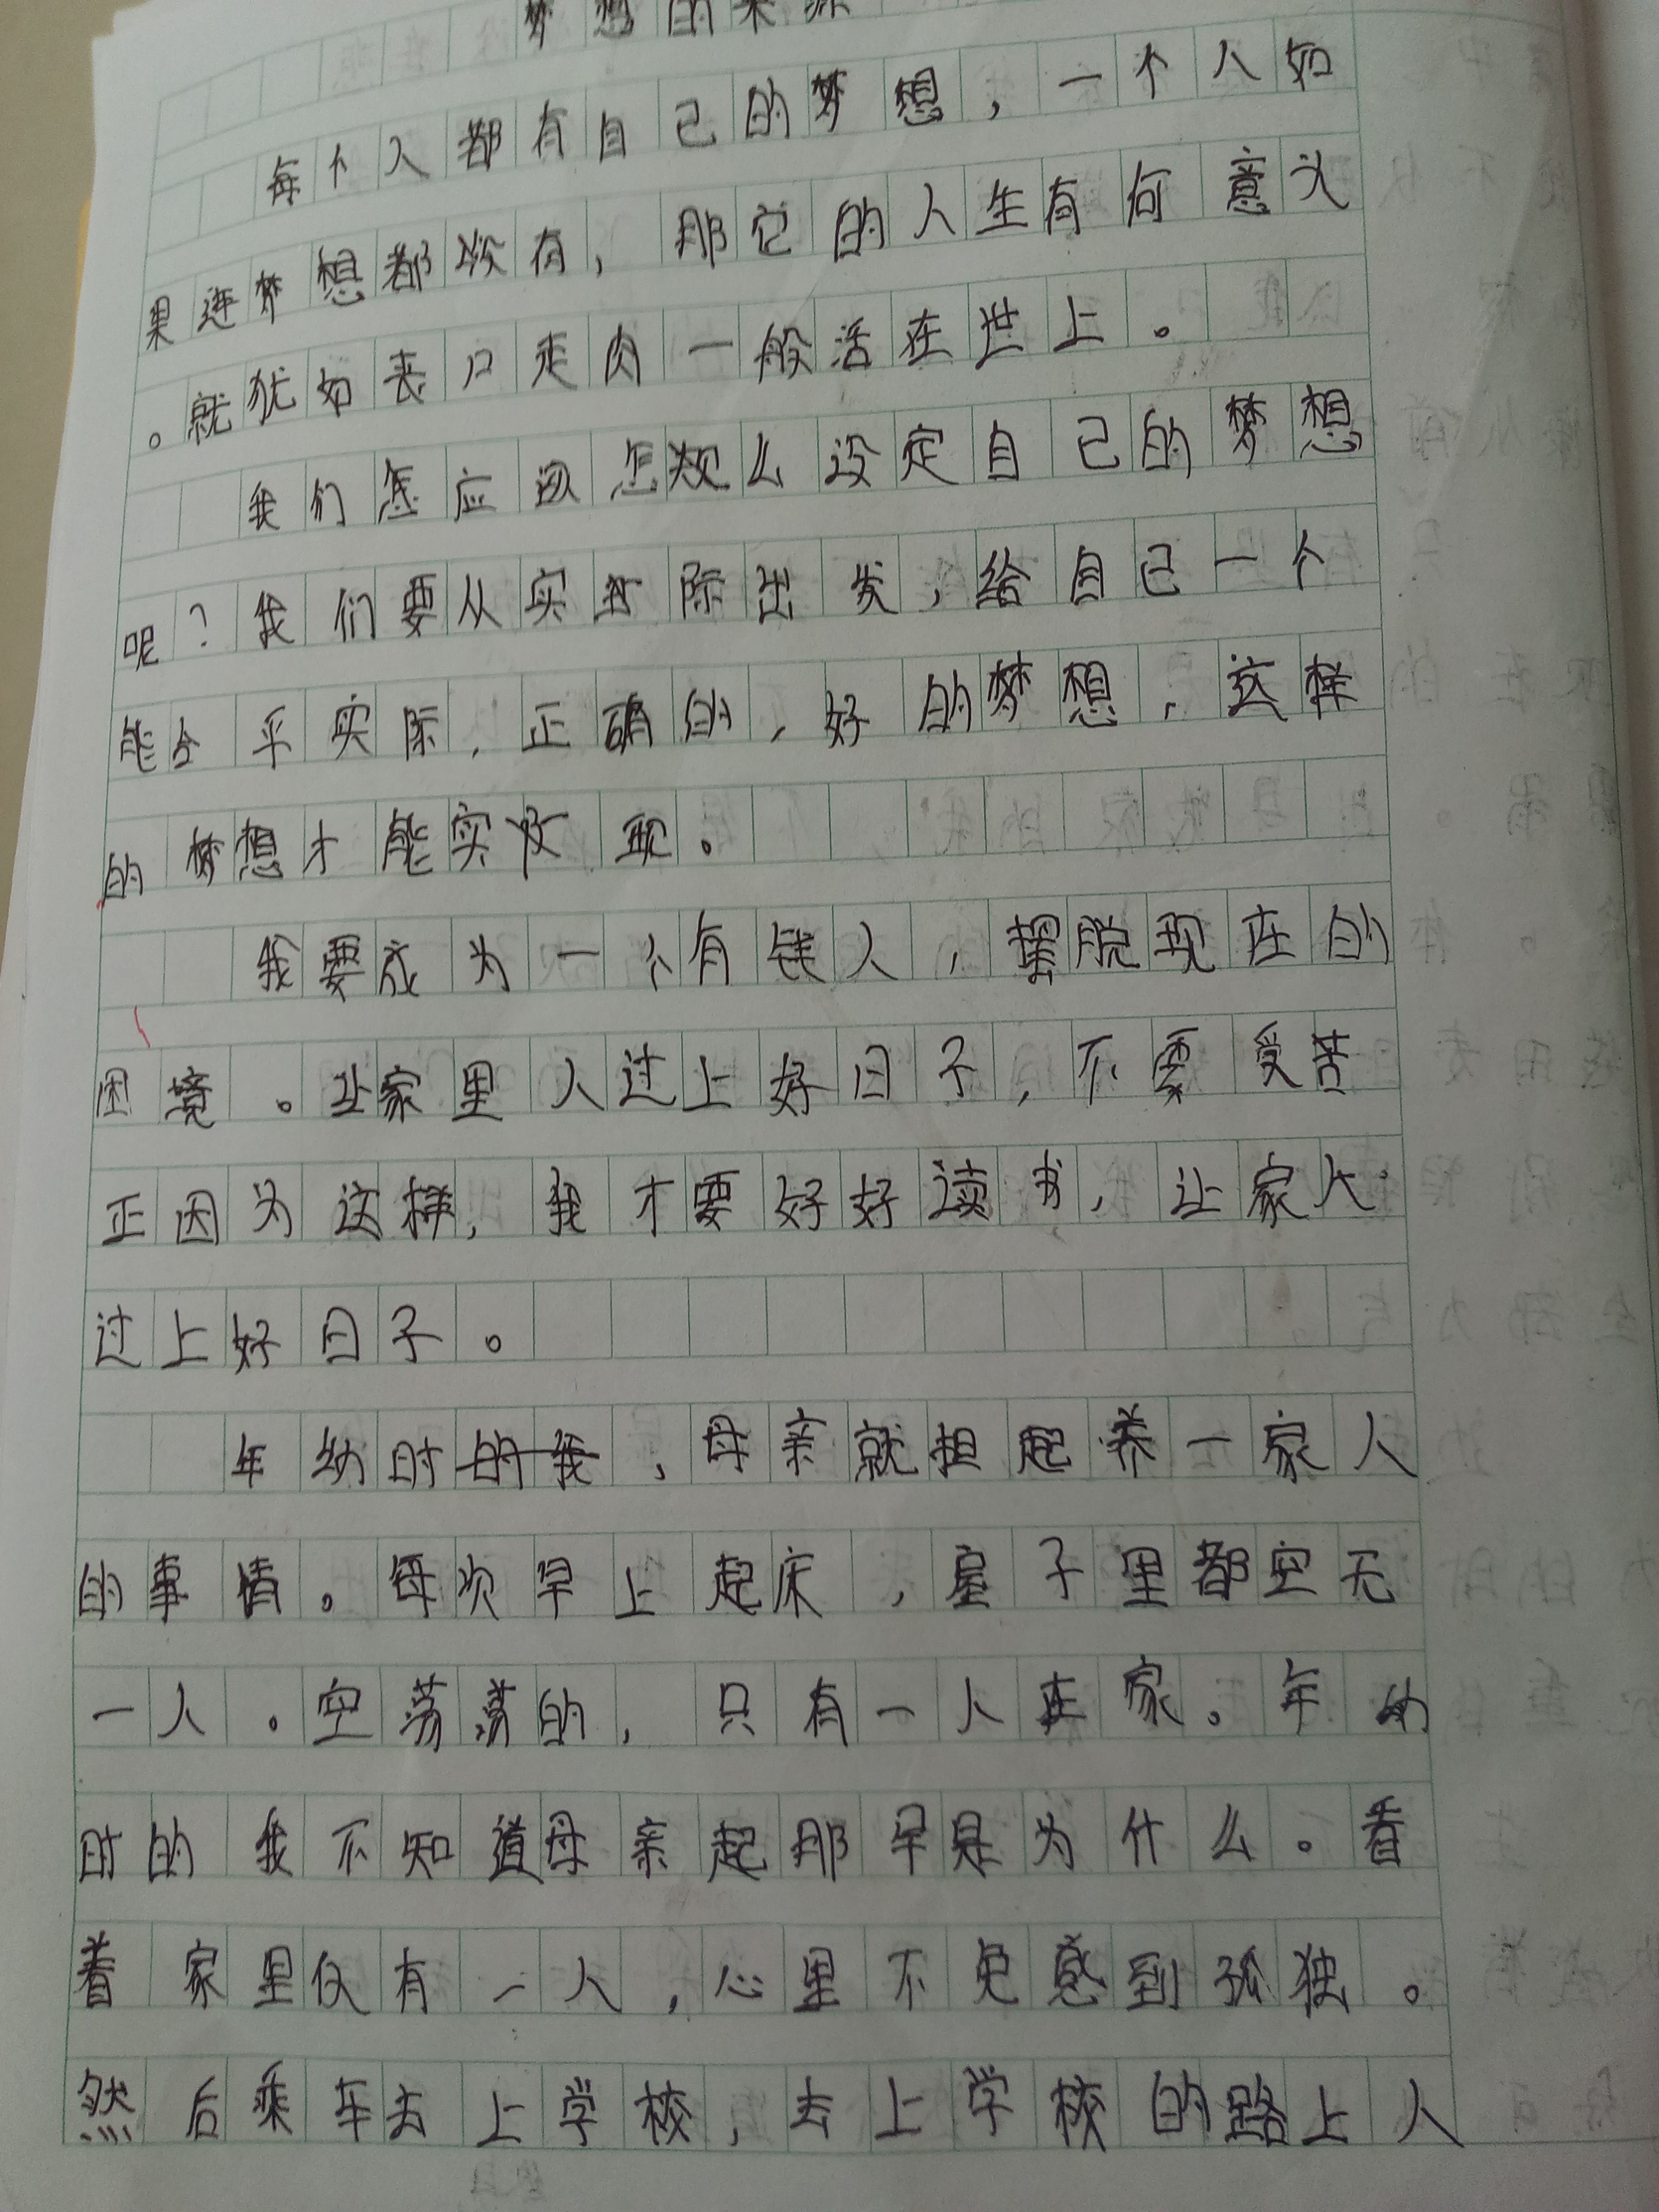 梦想的来源
每个人都有自己的梦想，一个人如
果连梦想都没有，那它的人生有何意义
。就犹如丧尸走肉一般活在世上。
我们应该怎么设定自己的梦想
呢？我们要从实际出发，给自己一个
能合乎实际，正确的，好的梦想，这样
的梦想才能实现。
我要成为一个有钱人，摆脱现在的
困境。让家里人过上好日子，不要受苦
正因为这样，我才要好好读书，让家人
过上好日子。
年幼时，母亲就担起养一家人
的事情。每次早上起床，屋子里都空无
一人。空荡荡的，只有一人在家。年幼
时的我不知道母亲起那早是为什么。看
着家里仅有一人，心里不免感到孤独。
然后乘车去上学校，去上学校的路上人